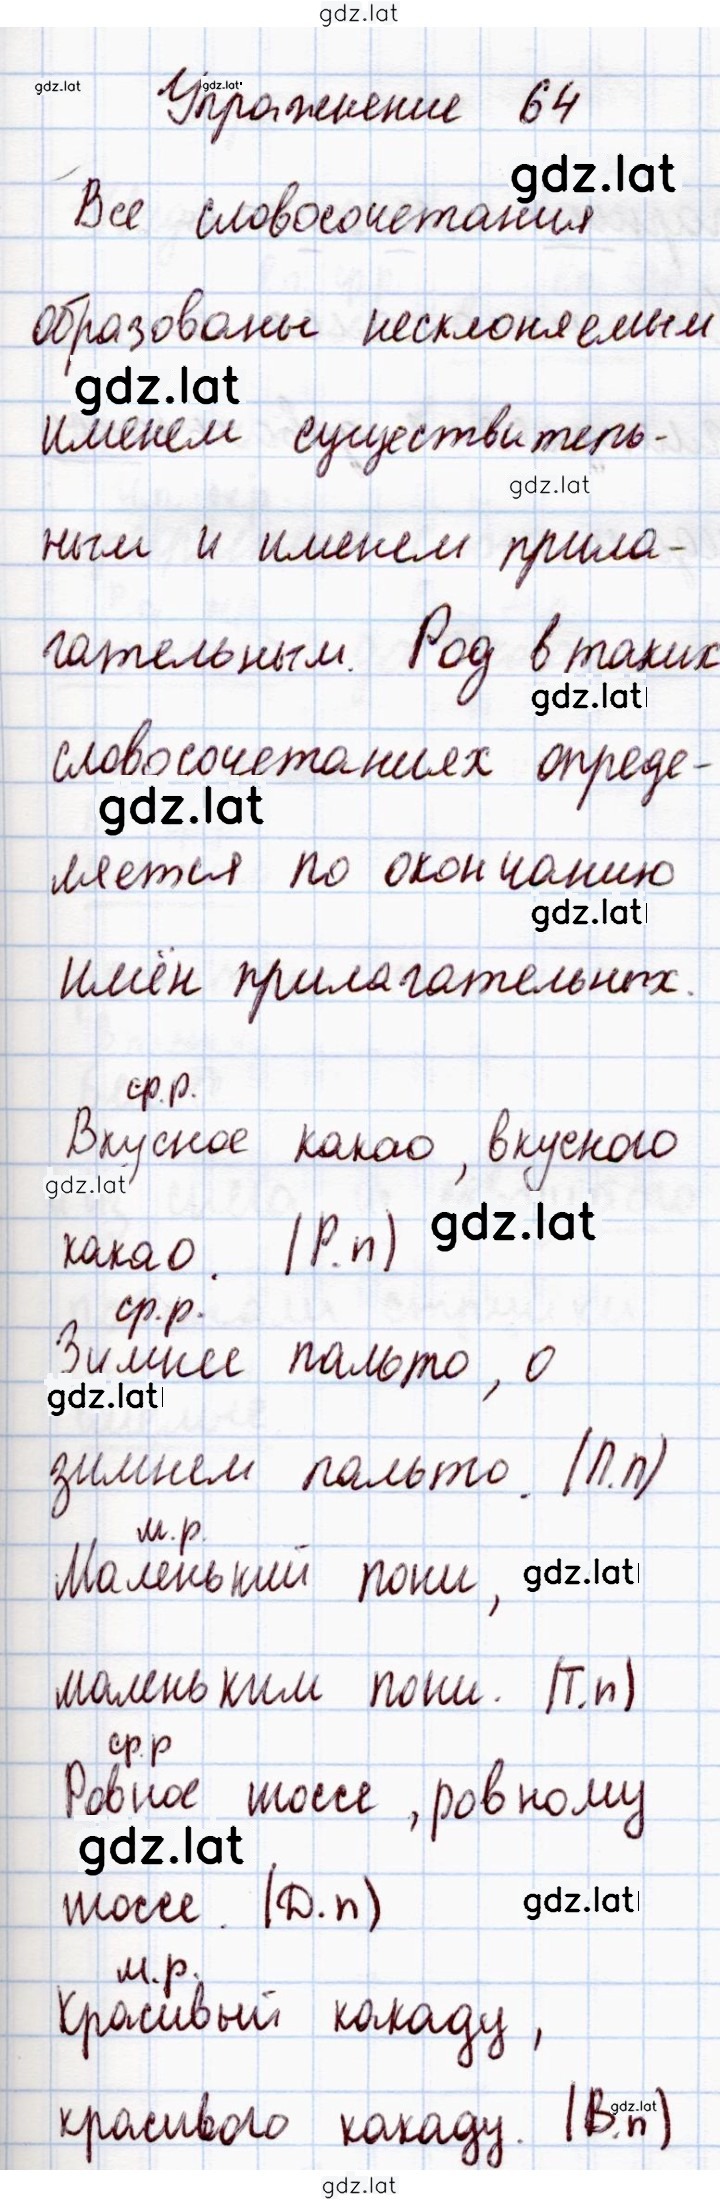 gdz.lat
gdz.lat
gdz.lat
Упражнение 64
gdz.lat
Все словосочетания
образованы несклоняемым
gdz.lat
именем существитель-
gdz.lat
ным и именем прила-
гательным. Род в таких
gdz.lat
словосочетаниях опреде-
gdz.lat
ляется по окончанию
gdz.lat
имён прилагательных.
ср.р.
Вкусное какао, вкусного
gdz.lat
gdz.lat
какао. (Р.п)
ср.р.
Зимнее пальто, о
gdz.lat
зимнем пальто. (П.п)
м.р.
Маленький пони,
gdz.lat
маленьким пони. (Т.п)
ср.р
Ровное шоссе, ровному
gdz.lat
шоссе. (Д.п)
gdz.lat
м.р.
Красивый какаду,
красивого какаду. (В.п)
gdz.lat
gdz.lat